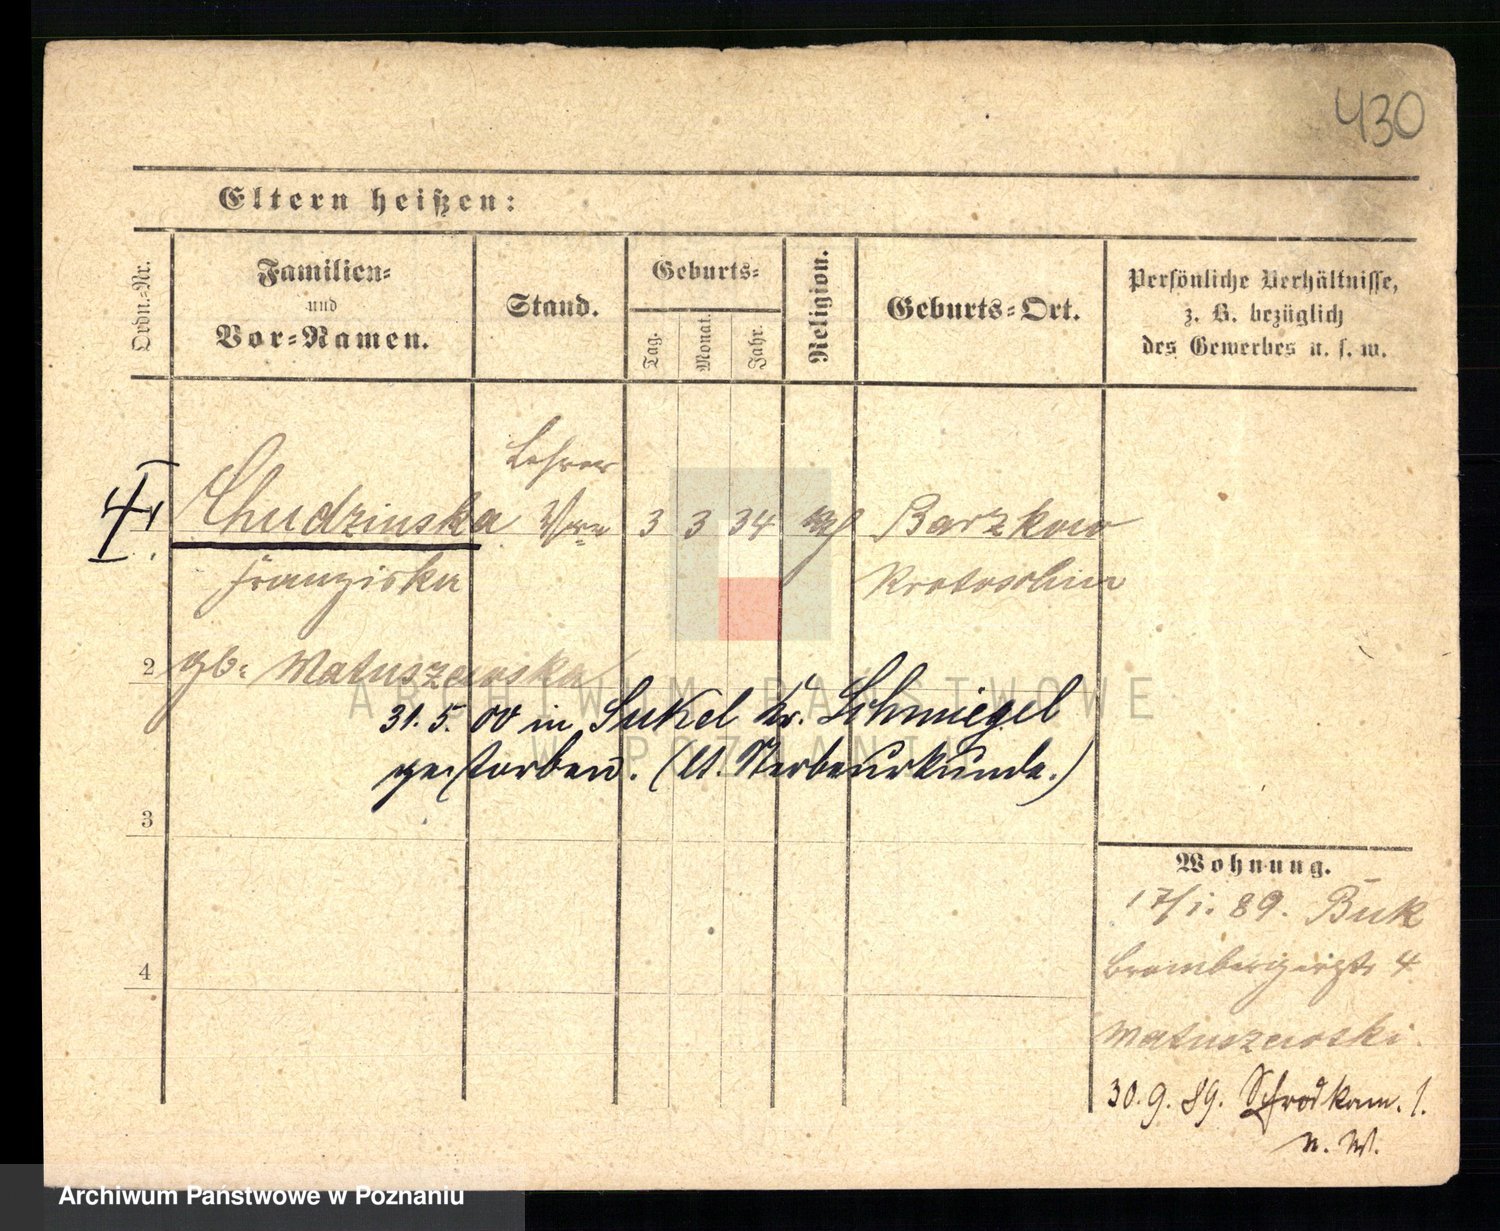 430
Eltern heißen:
Ordn.-Nr.
Familien-
und
Vor-Namen.
Stand.
Geburts-
Tag.
Monat.
Jahr.
Religion.
Geburts-Ort.
Persönliche Verhältnisse,
z. B. bezüglich
des Gewerbes u. s. w.
Lehrer
Chudzinska 3 3 34 Barzkow
Franziska Krotoschin
2 gb: Matuszewska
31. 5. 00 in Sukel Kr. Schmiegel
gestorben. (lt. Sterbeurkunde.)
3
4
Wohnung.
17/1. 89. Buk
4
Matuszewski.
30. 9. 89. Schrodkam. 1.
n. W.
ARCHIWUM PAŃSTWOWE
W POZNANIU
Archiwum Państwowe w Poznaniu